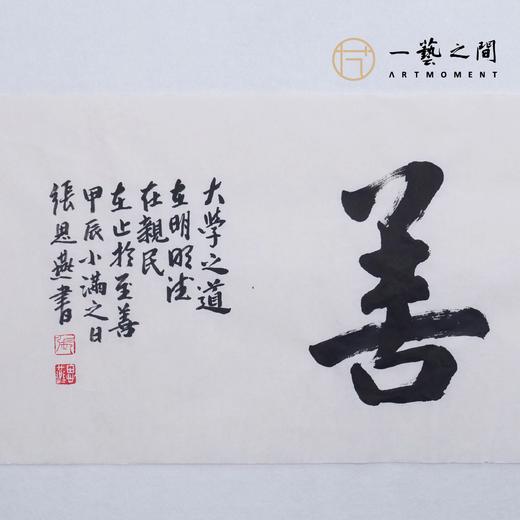 一藝之間
ARTMOMENT
善
大学之道
在明明德
在親民
在止於至善
甲辰小满之日
張思燕書